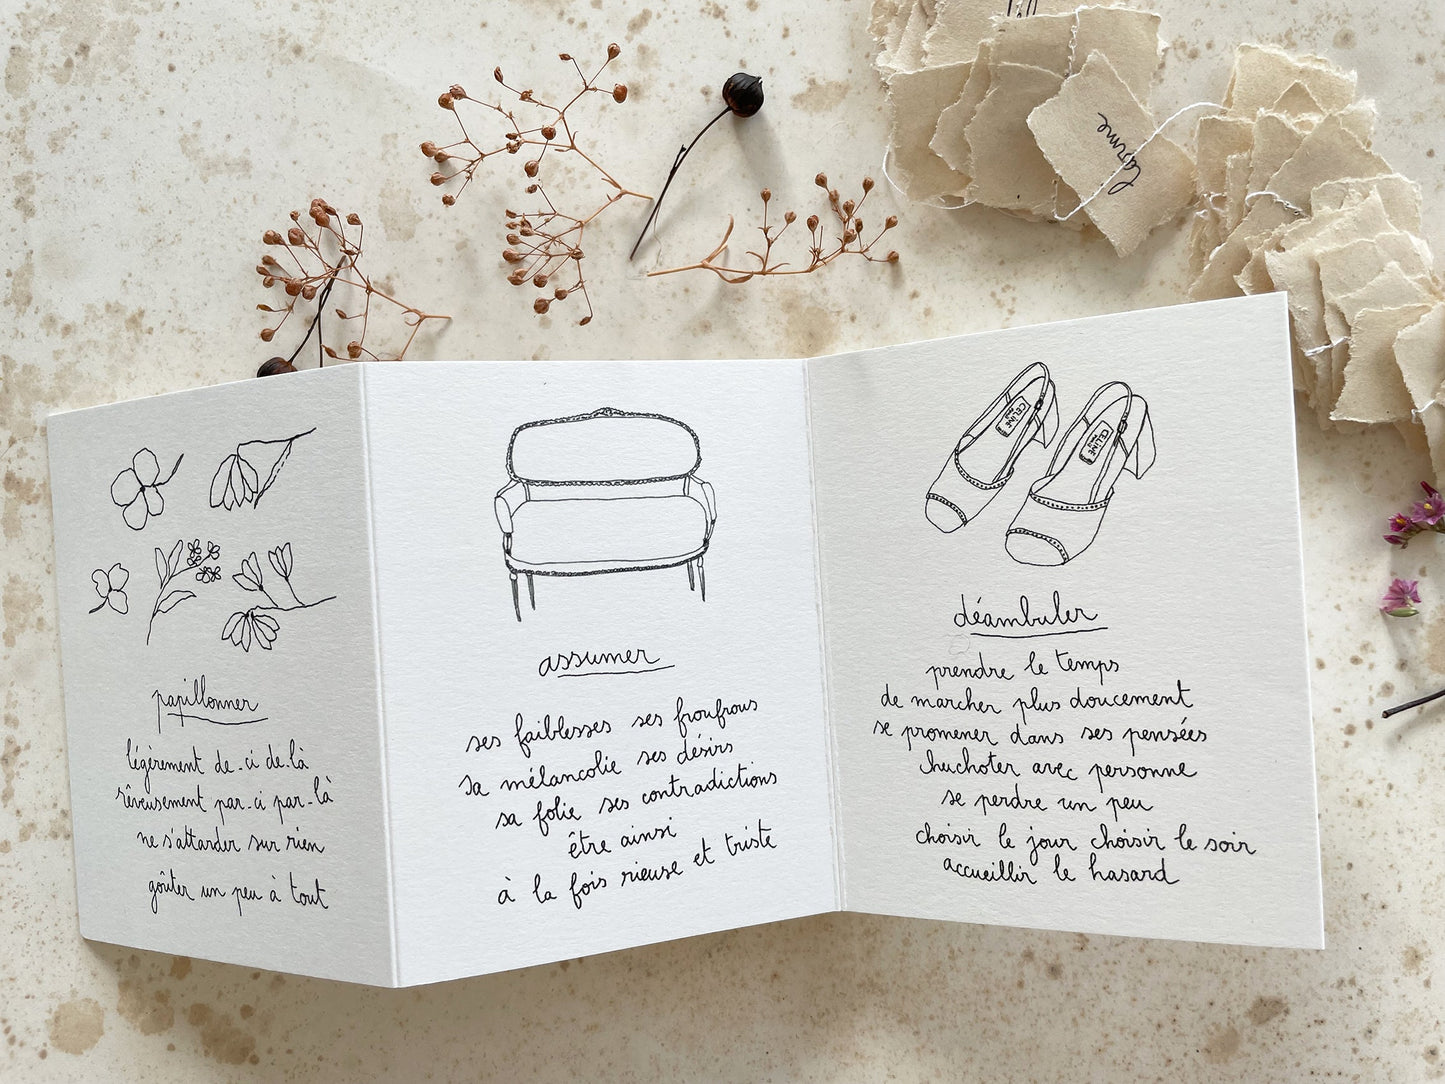 papillonner
légèrement de-ci de-là
rêveusement par-ci par-là
ne s'attarder sur rien
goûter un peu à tout
assumer
ses faiblesses ses froufrous
sa mélancolie ses désirs
sa folie ses contradictions
être ainsi
à la fois rieuse et triste
CELINE
CELINE
déambuler
prendre le temps
de marcher plus doucement
se promener dans ses pensées
chuchoter avec personne
se perdre un peu
choisir le jour choisir le soir
accueillir le hasard